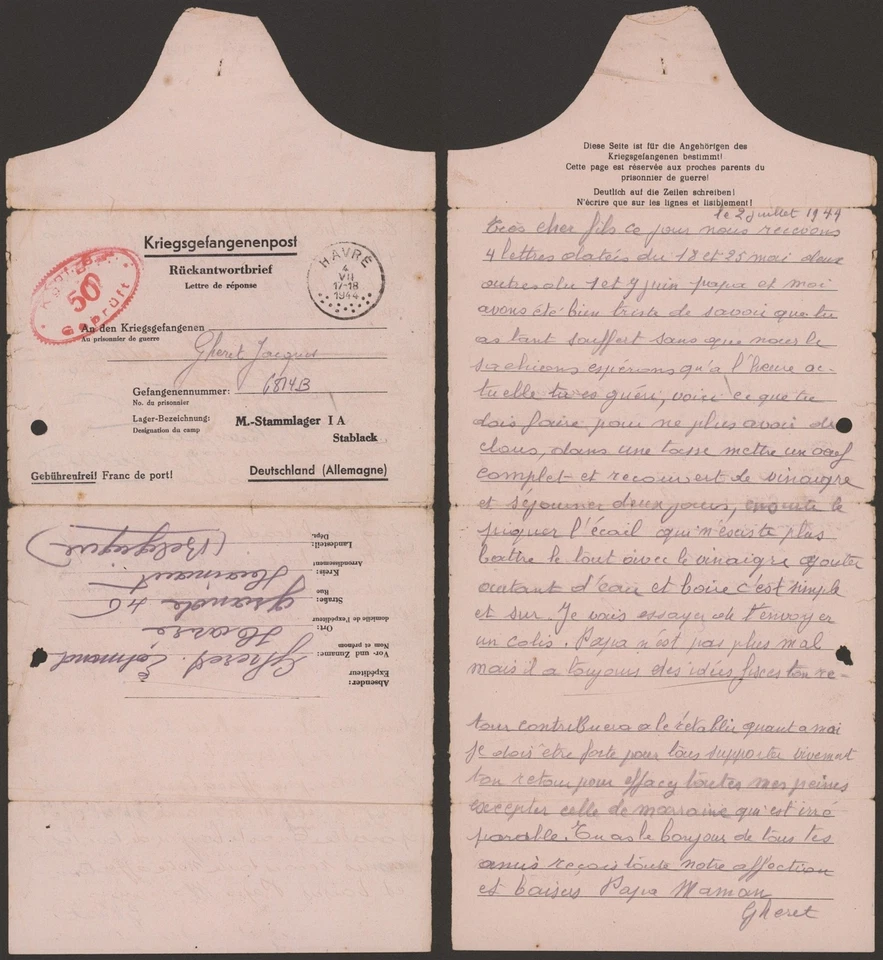 Kriegsgefangenenpost
Rückantwortbrief
Lettre de réponse
HAVRÉ
4
VII
17-18
1944
50
Geprüft
An den Kriegsgefangenen
Au prisonnier de guerre
Gheret Jacques
Gefangenennummer: 6814B
No. du prisonnier
Lager-Bezeichnung: M.-Stammlager I A
Designation du camp
Stablack
Gebührenfrei! Franc de port!
Deutschland (Allemagne)
Absender:
Expéditeur
Vor- und Zuname: Gheret Edmond
Nom et prénom
Ort: Havré
domicile de l'expéditeur
Straße: 46
Rue
Kreis: Hainaut
Arrondissement
Landesteil: (Belgique)
Dépt.
Diese Seite ist für die Angehörigen des
Kriegsgefangenen bestimmt!
Cette page est réservée aux proches parents du
prisonnier de guerre!
Deutlich auf die Zeilen schreiben!
N'écrire que sur les lignes et lisiblement!
le 2 juillet 1944
très cher fils ce jour nous recevons
4 lettres datées du 18 et 25 mai deux
autres du 1 et 7 juin papa et moi
avons été bien triste de savoir que tu
as tant souffert sans que nous le
sachions espérions qu'a l'heure ac-
tuelle tu es guéri, voici ce que tu
dois faire pour ne plus avoir de
clous, dans une tasse mettre un oeuf
complet et recouvert de vinaigre
et séjourner deux jours, ensuite le
piquer l'écail qui n'existe plus
battre le tout avec le vinaigre ajouter
autant d'eau et boire c'est simple
et sur. Je vais essayer de t'envoyer
un colis. Papa n'est pas plus mal
mais il a toujours des idées fixes ton re-
tour contribuera a le rétablir quant a moi
je dois être forte pour tous supporter vivement
ton retour pour effacer toutes mes peines
excepter celle de marraine qui est irré
parable. Tu as le bonjour de tous tes
amis reçois toute notre affection
et baisers Papa Maman
Gheret